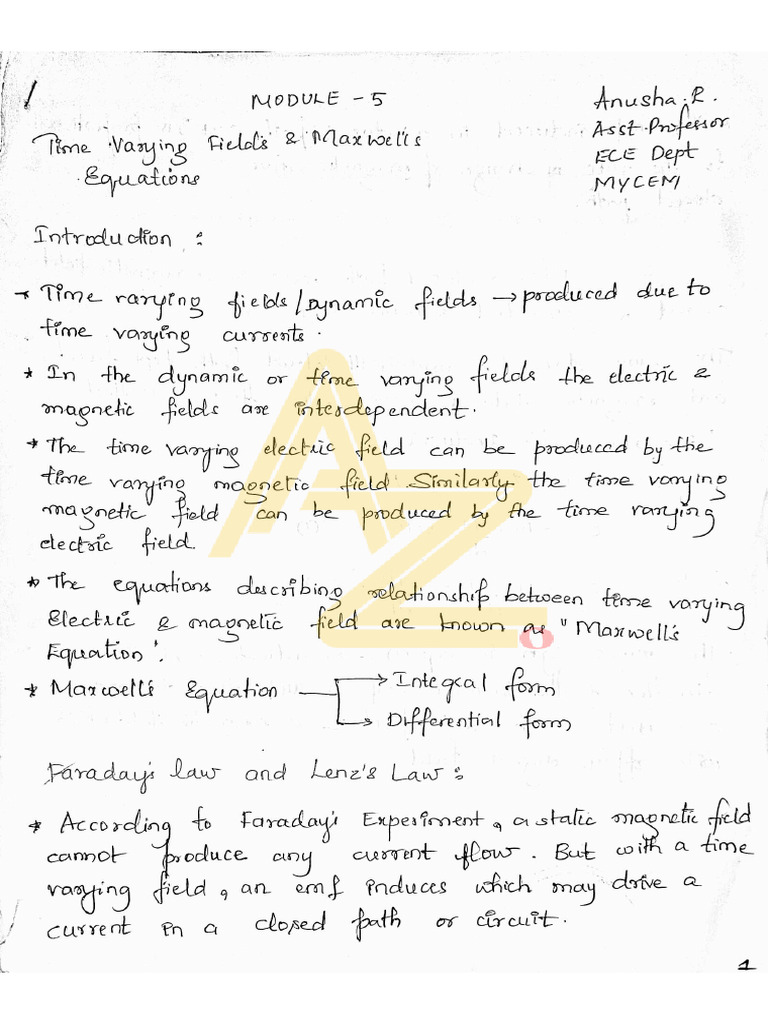 MODULE - 5
Anusha.R.
Asst.Professor
ECE Dept
MYCEM
Time Varying Fields & Maxwell's
Equations
Introduction :
* Time varying fields/Dynamic fields → produced due to
time varying currents.
* In the dynamic or time varying fields the electric &
magnetic fields are interdependent.
* The time varying electric field can be produced by the
time varying magnetic field. Similarly the time varying
magnetic field can be produced by the time varying
electric field.
* The equations describing relationship between time varying
Electric & magnetic field are known as "Maxwell's
Equation".
* Maxwell's Equation → Integral form
→ Differential form
Faraday's law and Lenz's Law :
* According to Faraday's Experiment, a static magnetic field
cannot produce any current flow. But with a time
varying field, an emf induces which may drive a
current in a closed path or circuit.
1
AZ